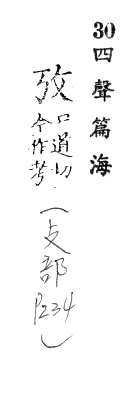 30四聲篇海
攷 口道切
今作考
（攴部
P234）